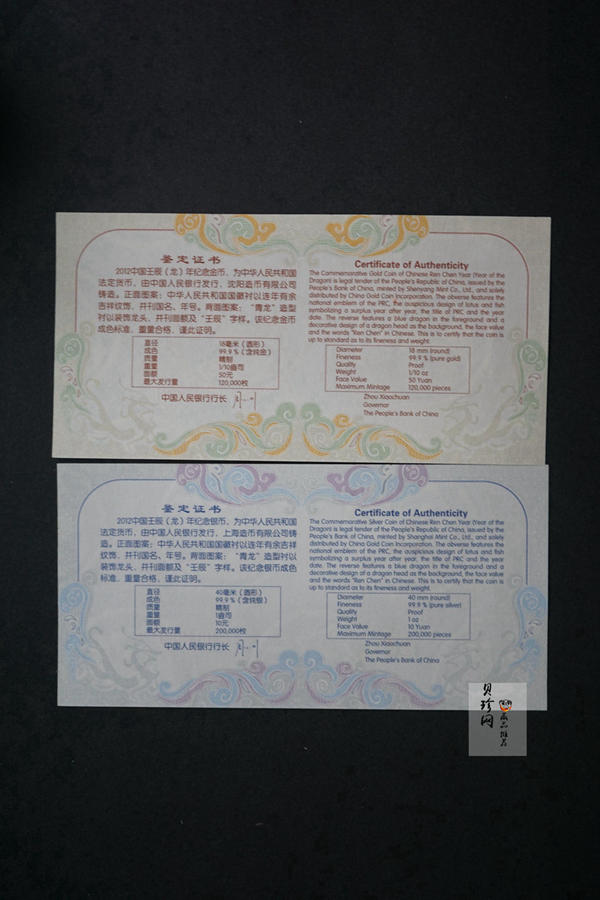 鉴定证书
2012中国壬辰（龙）年纪念金币，为中华人民共和国
法定货币，由中国人民银行发行，沈阳造币有限公司
铸造。正面图案：中华人民共和国国徽衬以连年有余
吉祥纹饰，并刊国名、年号。背面图案：“青龙”造型
衬以装饰龙头，并刊面额及“壬辰”字样。该纪念金币
成色标准，重量合格，谨此证明。
直径 18毫米（圆形）
成色 99.9％（含纯金）
质量 精制
重量 1/10盎司
面额 50元
最大发行量 120,000枚
中国人民银行行长
Certificate of Authenticity
The Commemorative Gold Coin of Chinese Ren Chen Year (Year of the
Dragon) is legal tender of the People's Republic of China, issued by the
People's Bank of China, minted by Shenyang Mint Co., Ltd., and solely
distributed by China Gold Coin Incorporation. The obverse features the
national emblem of the PRC, the auspicious design of lotus and fish
symbolizing a surplus year after year, the title of PRC and the year
date. The reverse features a blue dragon in the foreground and a
decorative design of a dragon head as the background, the face value
and the words "Ren Chen" in Chinese. This is to certify that the coin is
up to standard as to its fineness and weight.
Diameter 18 mm (round)
Fineness 99.9 % (pure gold)
Quality Proof
Weight 1/10 oz
Face Value 50 Yuan
Maximum Mintage 120,000 pieces
Zhou Xiaochuan
Governor
The People's Bank of China
鉴定证书
2012中国壬辰（龙）年纪念银币，为中华人民共和国
法定货币，由中国人民银行发行，上海造币有限公司铸
造。正面图案：中华人民共和国国徽衬以连年有余吉祥
纹饰，并刊国名、年号。背面图案：“青龙”造型衬以
装饰龙头，并刊面额及“壬辰”字样。该纪念银币成色
标准，重量合格，谨此证明。
直径 40毫米（圆形）
成色 99.9％（含纯银）
质量 精制
重量 1盎司
面额 10元
最大发行量 200,000枚
中国人民银行行长
Certificate of Authenticity
The Commemorative Silver Coin of Chinese Ren Chen Year (Year of the
Dragon) is legal tender of the People's Republic of China, issued by the
People's Bank of China, minted by Shanghai Mint Co., Ltd., and solely
distributed by China Gold Coin Incorporation. The obverse features the
national emblem of the PRC, the auspicious design of lotus and fish
symbolizing a surplus year after year, the title of PRC and the year
date. The reverse features a blue dragon in the foreground and a
decorative design of a dragon head as the background, the face value
and the words "Ren Chen" in Chinese. This is to certify that the coin is
up to standard as to its fineness and weight.
Diameter 40 mm (round)
Fineness 99.9 % (pure silver)
Quality Proof
Weight 1 oz
Face Value 10 Yuan
Maximum Mintage 200,000 pieces
Zhou Xiaochuan
Governor
The People's Bank of China
贝珍网
推荐